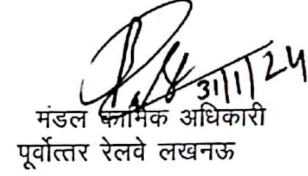 31/1/24
मंडल कार्मिक अधिकारी
पूर्वोत्तर रेलवे लखनऊ